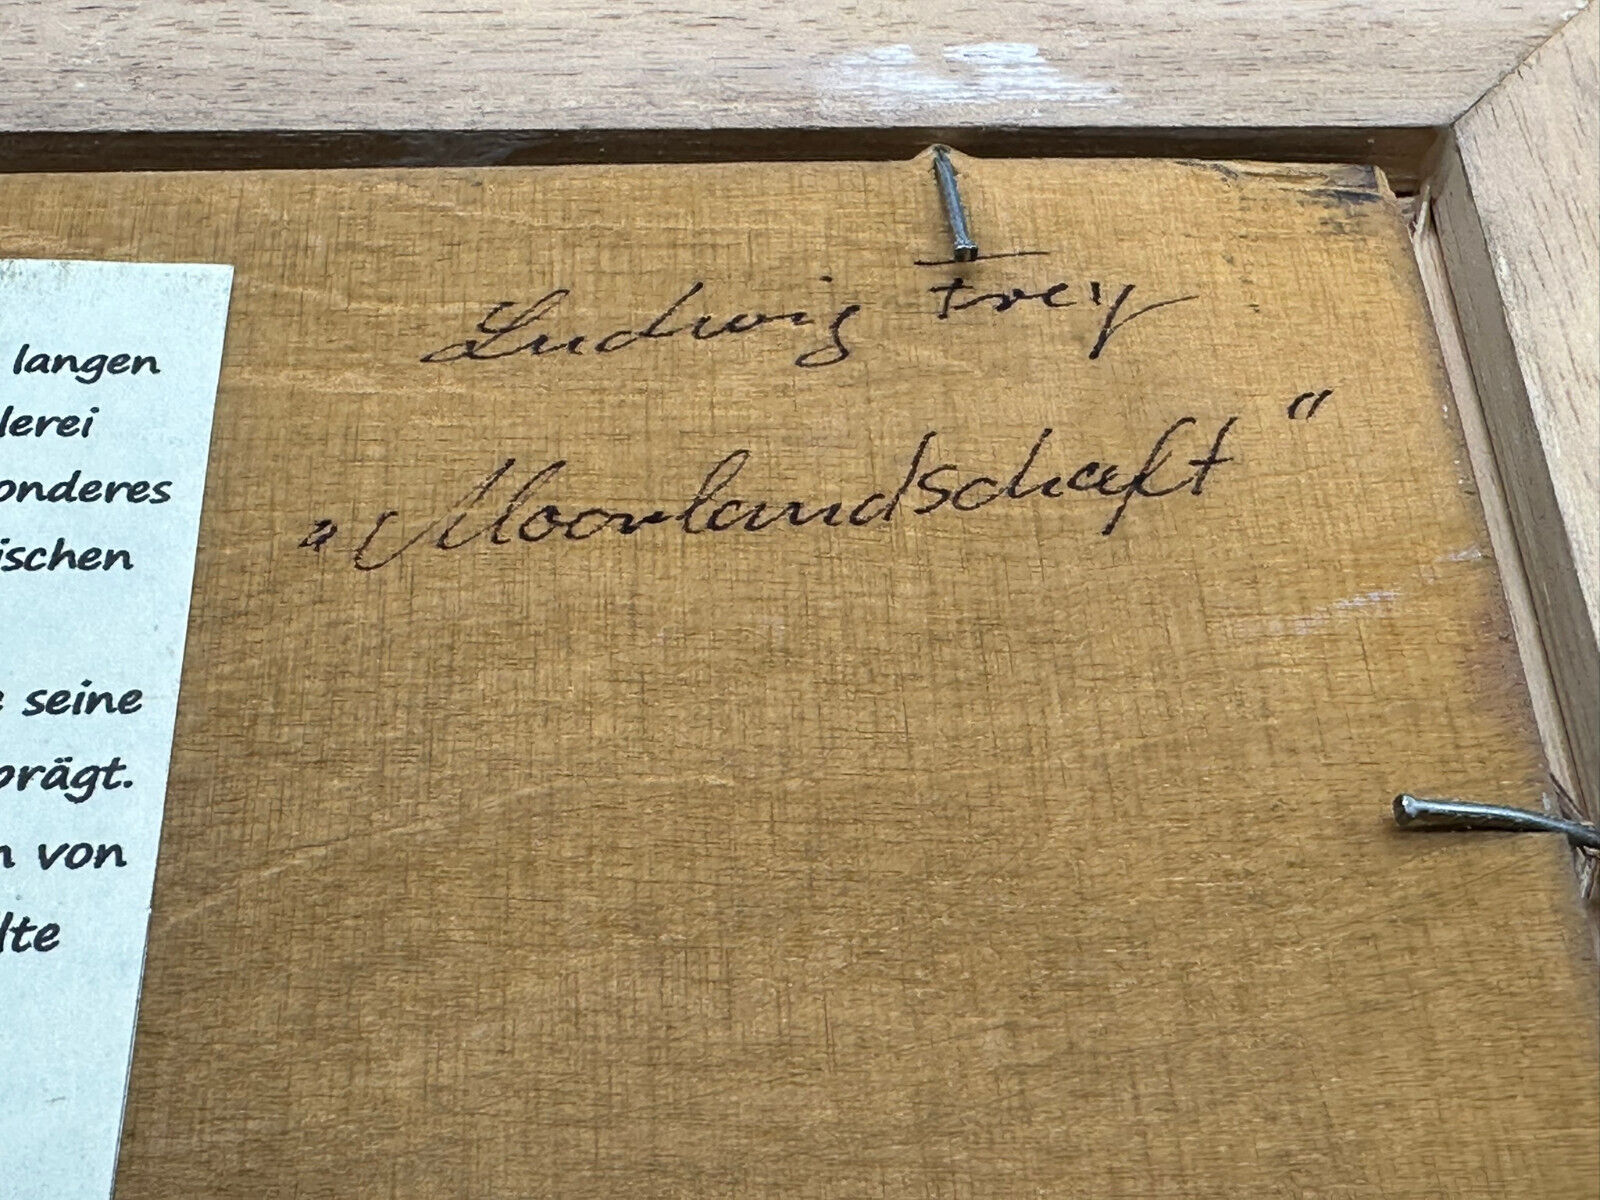 Ludwig Frey
„Moorlandschaft"
langen
lerei
onderes
ischen
seine
prägt.
von
lte